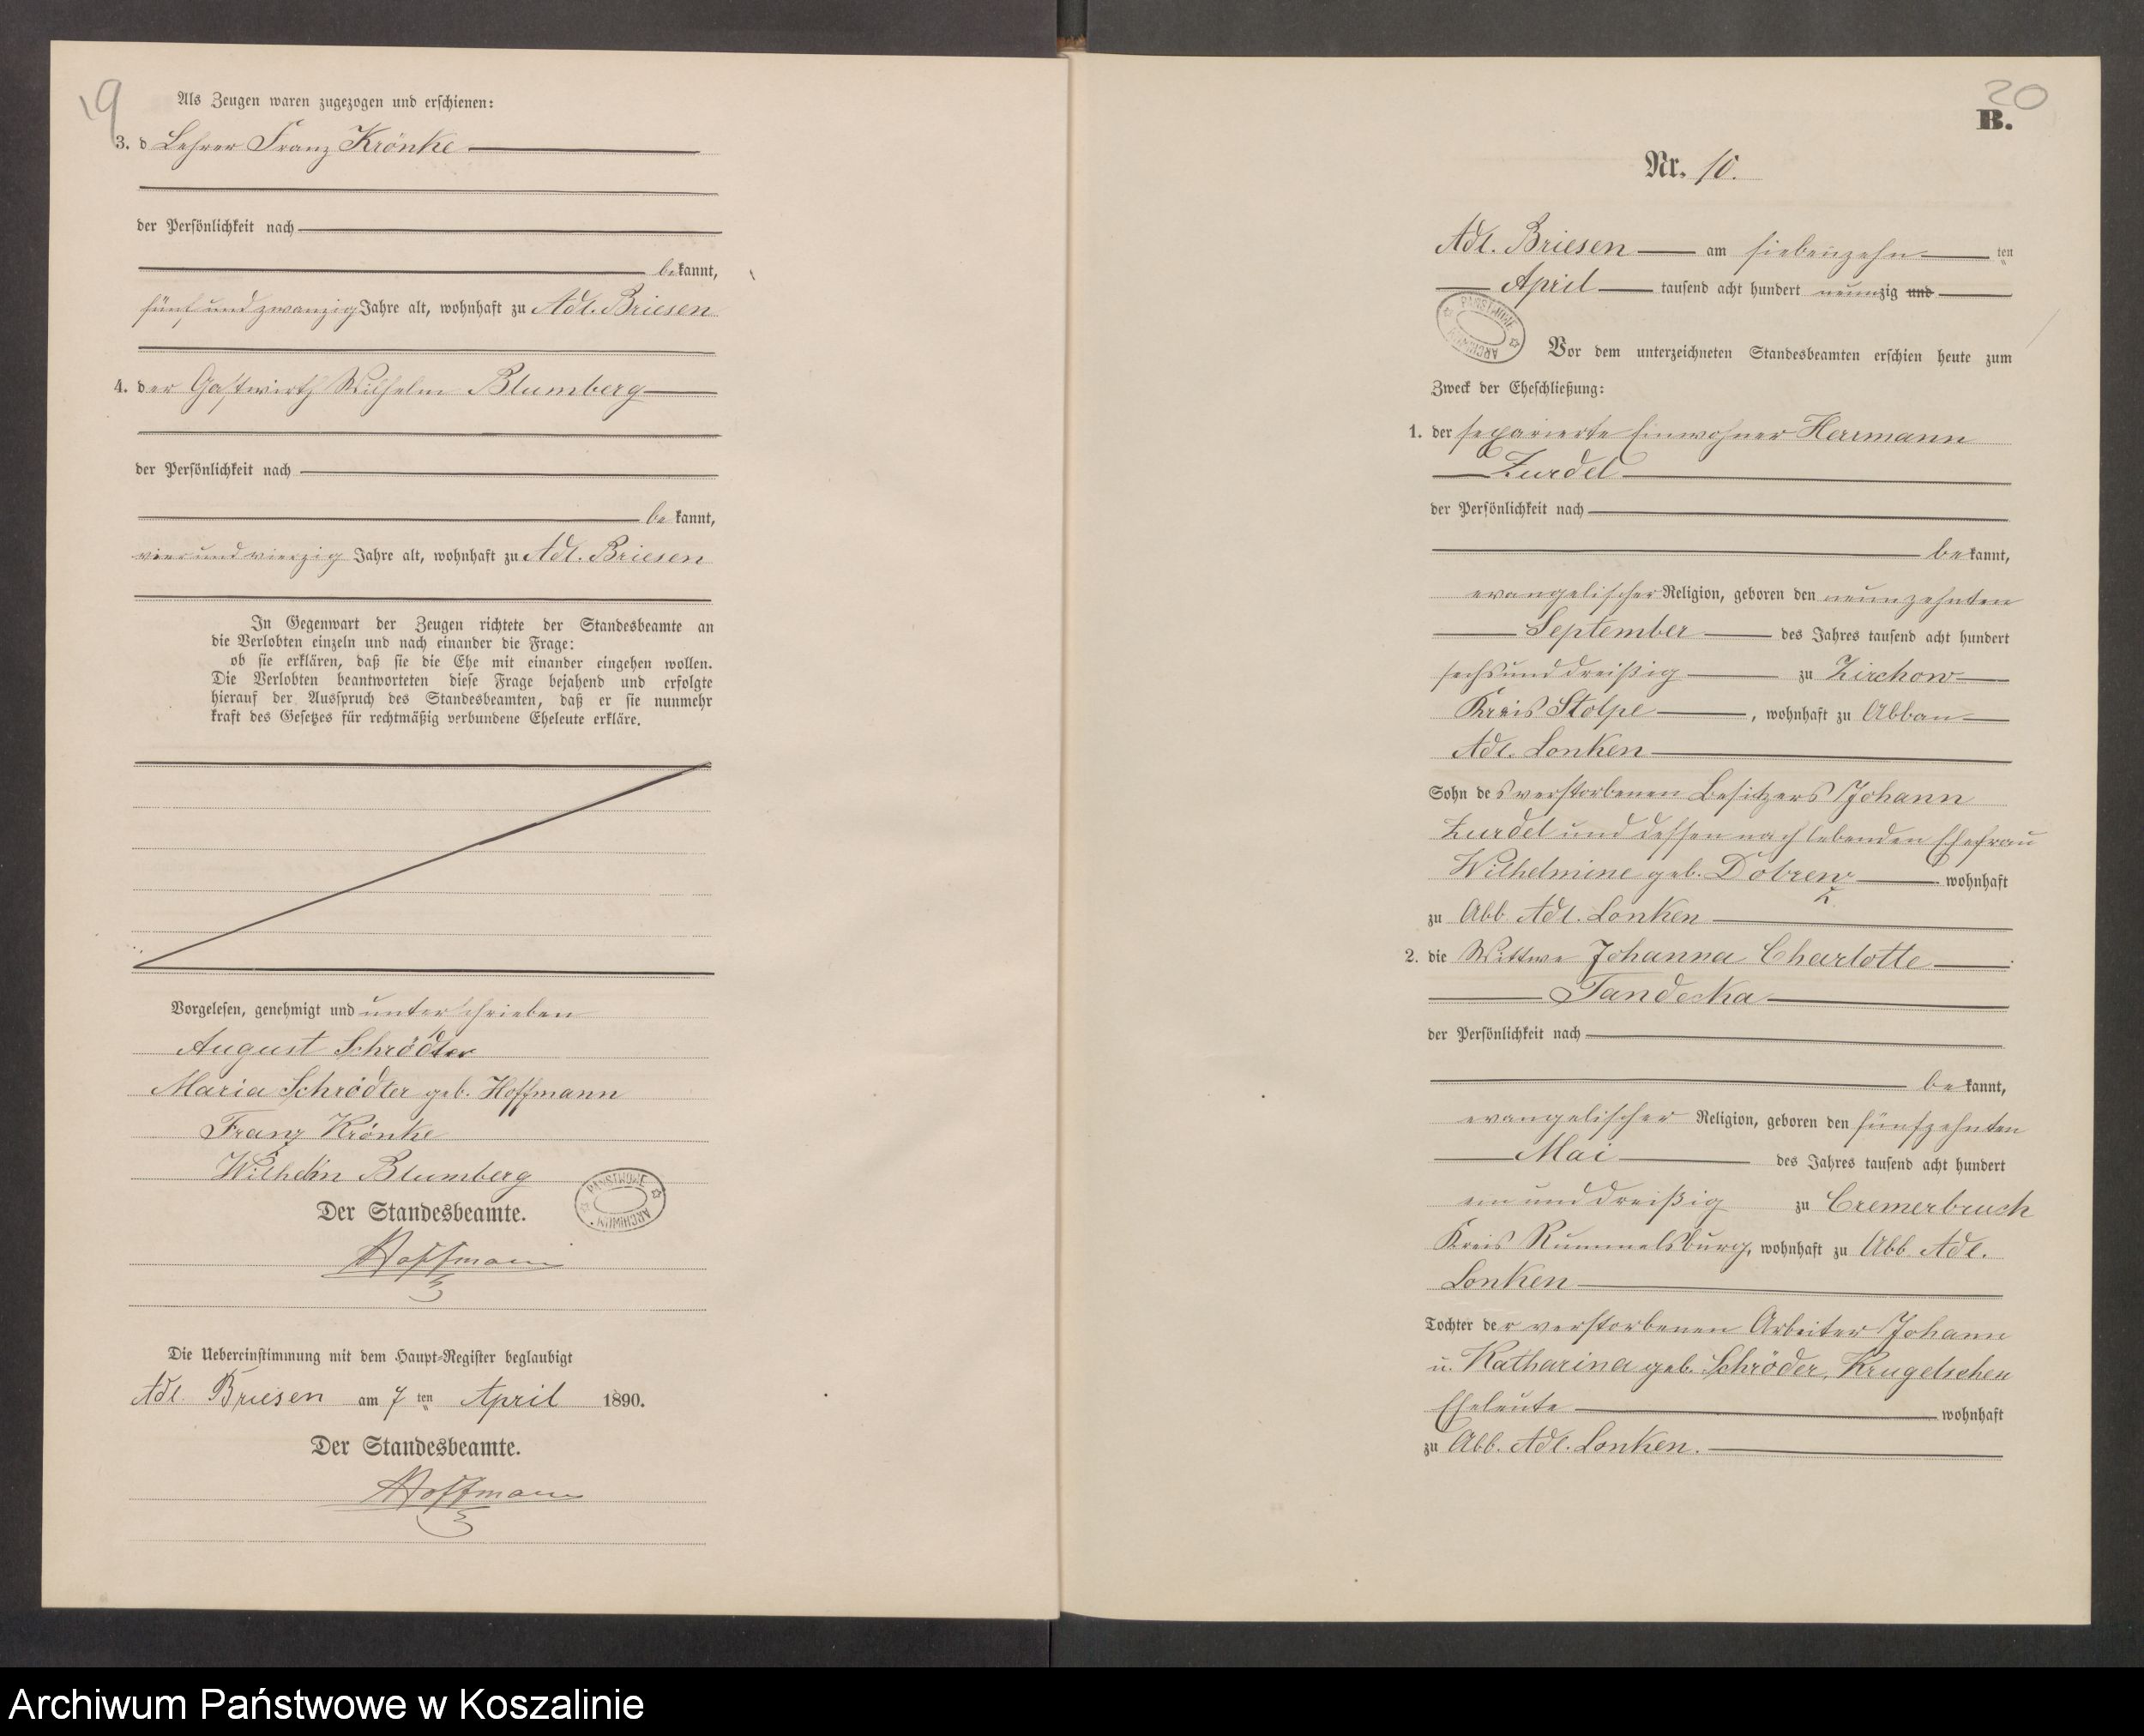 19
Als Zeugen waren zugezogen und erschienen:
3. d Lehrer Franz Krönke
der Persönlichkeit nach
bekannt,
fünf und zwanzig Jahre alt, wohnhaft zu Adl. Briesen
4. der Gastwirth Wilhelm Blumberg
der Persönlichkeit nach
bekannt,
vier und vierzig Jahre alt, wohnhaft zu Adl. Briesen
In Gegenwart der Zeugen richtete der Standesbeamte an
die Verlobten einzeln und nach einander die Frage:
ob sie erklären, daß sie die Ehe mit einander eingehen wollen.
Die Verlobten beantworteten diese Frage bejahend und erfolgte
hierauf der Ausspruch des Standesbeamten, daß er sie nunmehr
kraft des Gesetzes für rechtmäßig verbundene Eheleute erkläre.
Vorgelesen, genehmigt und unterschrieben
August Schrödter
Maria Schrödter geb. Hoffmann
Franz Krönke
Wilhelm Blumberg
PAŃSTWOWE ARCHIWUM
Der Standesbeamte.
Hoffmann
Die Uebereinstimmung mit dem Haupt-Register beglaubigt
Adl. Briesen am 7 ten April 1890.
Der Standesbeamte.
Hoffmann
20
B.
Nr. 10.
Adl. Briesen am siebenzehn ten
April tausend acht hundert neunzig und
PAŃSTWOWE ARCHIWUM
Vor dem unterzeichneten Standesbeamten erschien heute zum
Zweck der Eheschließung:
1. der separierte Einwohner Herrmann
Zurdel
der Persönlichkeit nach
bekannt,
evangelischer Religion, geboren den neunzehnten
September des Jahres tausend acht hundert
sechs und dreißig zu Zirchow
Kreis Stolpe, wohnhaft zu Abbau
Adl. Lonken
Sohn des verstorbenen Besitzers Johann
Zurdel und dessen noch lebenden Ehefrau
Wilhelmine geb. Dobrew wohnhaft
zu Abb. Adl. Lonken
2. die Wittwe Johanna Charlotte
Tandecka
der Persönlichkeit nach
bekannt,
evangelischer Religion, geboren den fünfzehnten
Mai des Jahres tausend acht hundert
ein und dreißig zu Cremerbruch
Kreis Rummelsburg, wohnhaft zu Abb. Adl.
Lonken
Tochter der verstorbenen Arbeiter Johann
u. Katharina geb. Schröder, Krugelschen
Eheleute wohnhaft
zu Abb. Adl. Lonken.
Archiwum Państwowe w Koszalinie